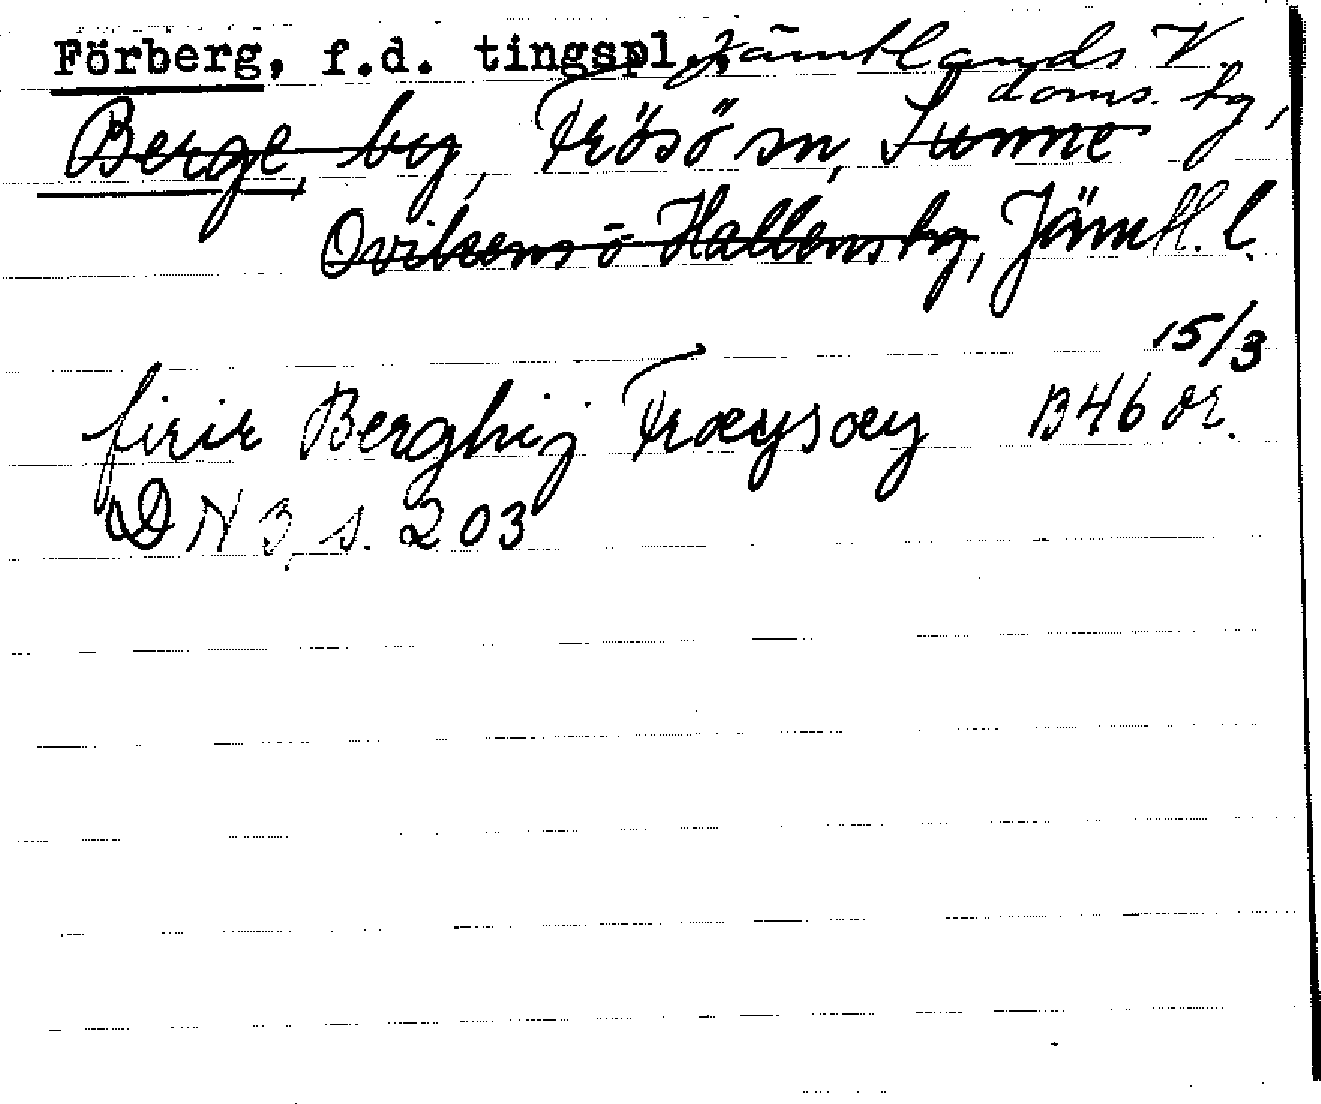 Förberg, f.d. tingspl., Jämtlands V.
doms. hg,
Berge, by, Frösö sn, Sunne
Ovikens o Hallens hg, Jämtl. l.
15/3
firir Berghi j Frœysœy 1346 or.
DN 3, s. 203